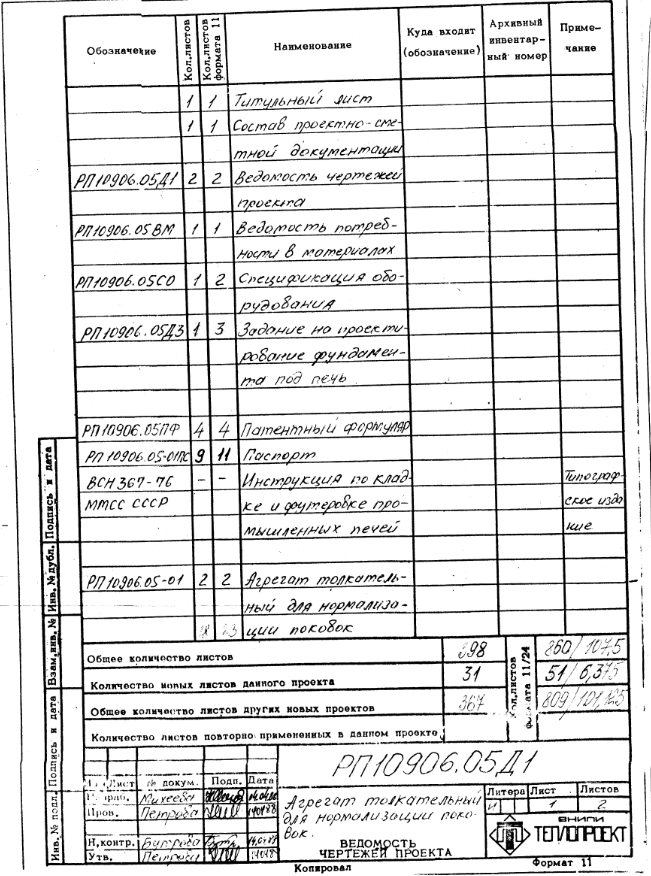 Обозначение Кол.листов Кол.листов формата 11 Наименование Куда входит (обозначение) Архивный инвентар-ный номер Приме-чание
1 1 Титульный лист
1 1 Состав проектно-сме-
тной документации
РП10906.05Д1 2 2 Ведомость чертежей
проекта
РП10906.05ВМ 1 1 Ведомость потреб-
ности в материалах
РП10906.05СО 1 2 Спецификация обо-
рудования
РП10906.05Д3 1 3 Задание на проекти
рование фундамен-
та под печь
РП10906.05ПФ 4 4 Патентный формуляр
РП 10906.05-01ПС 9 11 Паспорт
ВСН 367-76 - - Инструкция по клад Типограф-
ММСС СССР ке и футеровке про- ское изда
мышленных печей ние
РП10906.05-01 2 2 Агрегат толкатель-
ный для нормализа-
23 ции поковок
Общее количество листов 398 Кол.листов формата 11/24 860/107,5
Количество новых листов данного проекта 31 51/6,375
Общее количество листов других новых проектов 367 809/101,125
Количество листов повторно примененных в данном проекте
РП10906.05Д1
Лист № докум. Подп. Дата
Разраб. Михеева
Пров. Петрова
Н.контр.
Утв. Петрова
Агрегат толкательный
для нормализации поко-
вок.
ВЕДОМОСТЬ
ЧЕРТЕЖЕЙ ПРОЕКТА
Литера Лист Листов
И 1 2
ВНИПИ
ТЕПЛОПРОЕКТ
Копировал Формат 11
Инв.№ подл. Подпись и дата Взам.инв.№ Инв.№ дубл. Подпись и дата